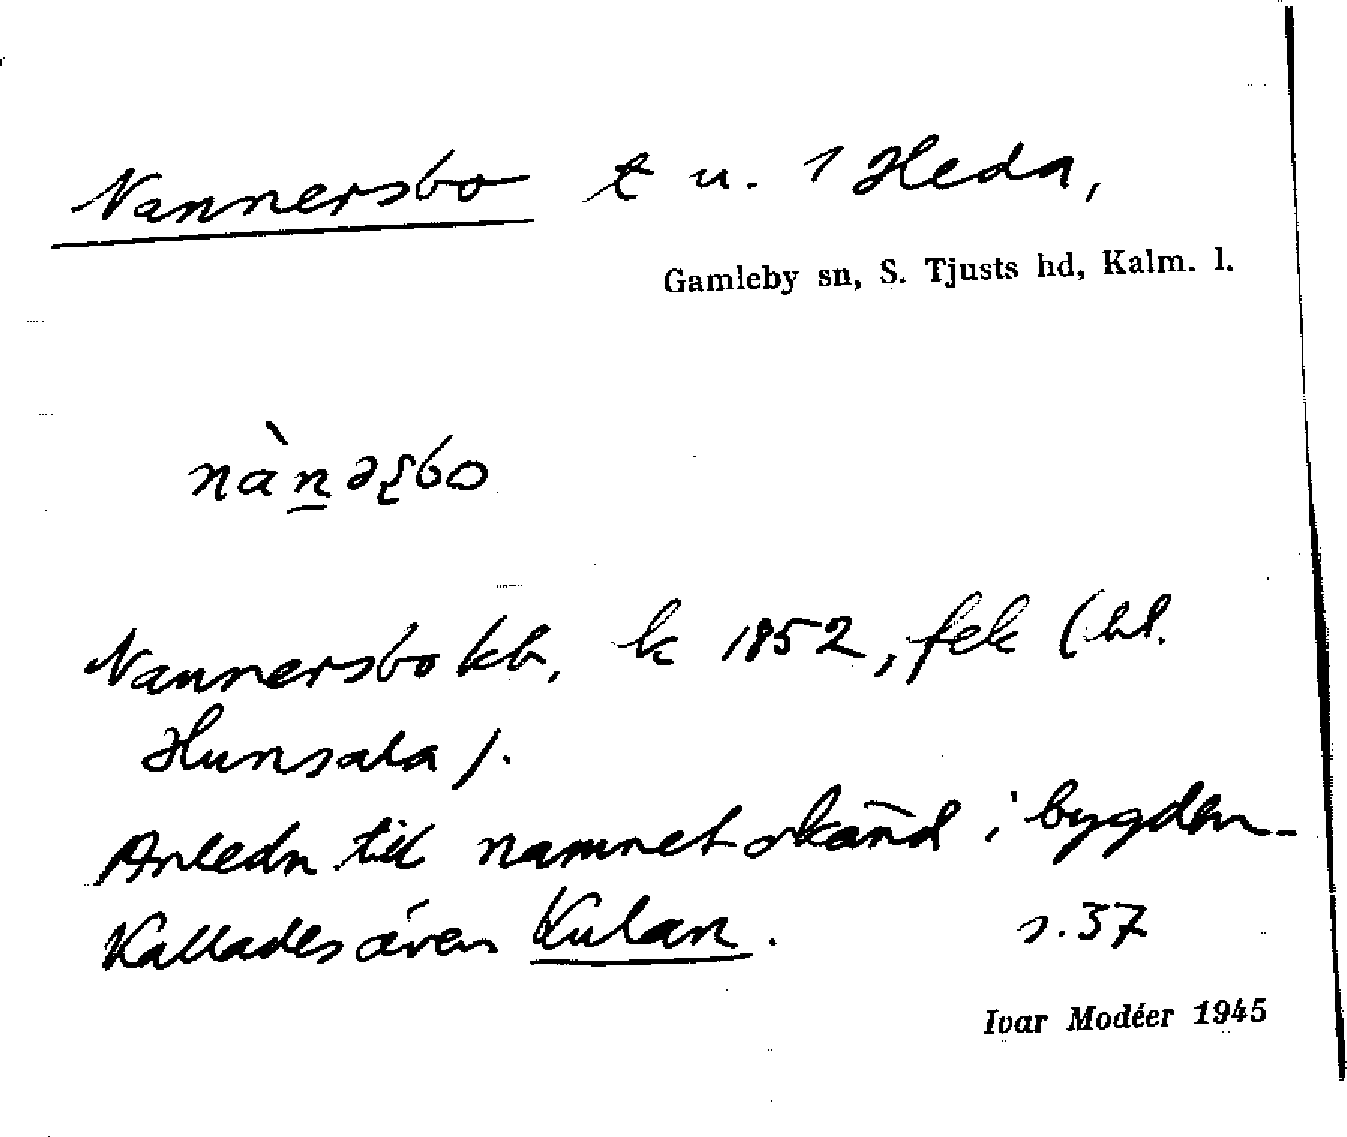 Nannersbo t u. 1 Heda,
Gamleby sn, S. Tjusts hd, Kalm. l.
nàn̲əʂbo
Nannersbo kb, k 1852, fek (bl.
Hunsala).
Anledn till namnet okänd i bygden.
Kallades även Kulan. s. 37
Ivar Modéer 1945